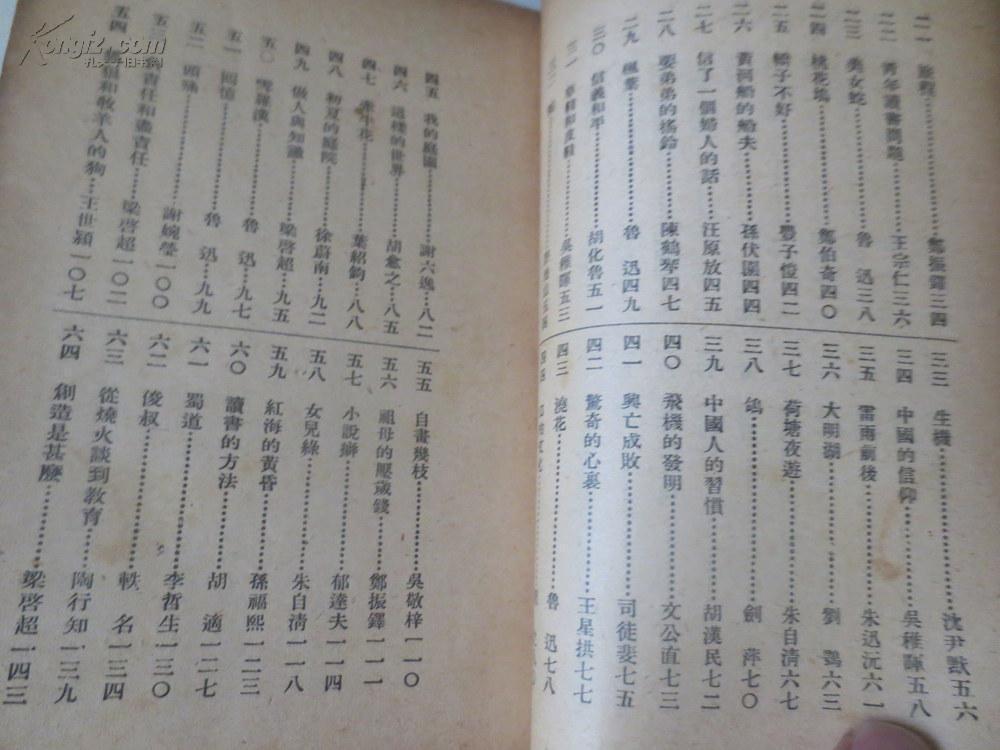 二一 旅程……鄭振鐸三四
二二 青年讀書問題……王宗仁三六
二三 美女蛇……魯 迅三八
二四 桃花塢……鄭伯奇四〇
二五 轎子不好……豐子愷四二
二六 黃河船的船夫……孫伏園四四
二七 信了一個婦人的話……汪原放四五
二八 耍弟弟的搖鈴……陳鶴琴四七
二九 楓葉……魯 迅四九
三〇 信義和平……胡化魯五一
三一 草鞋和皮鞋……吳稚暉五三
三三 生機……沈尹默五六
三四 中國的信仰……吳稚暉五八
三五 雷雨前後……朱迅沅六一
三六 大明湖……劉 鶚六三
三七 荷塘夜遊……朱自清六七
三八 鴿……劍 萍七〇
三九 中國人的習慣……胡漢民七二
四〇 飛機的發明……文公直七三
四一 興亡成敗……司徒斐七五
四二 驚奇的心裏……王星拱七七
四三 澆花……魯 迅七八
四四
四五 我的庭園……謝六逸八二
四六 這樣的世界……胡愈之八五
四七 牽牛花……葉紹鈞八八
四八 初夏的庭院……徐蔚南九二
四九 做人與知識……梁啓超九五
五〇 雪羅漢……魯 迅九七
五一 回憶……魯 迅九九
五二 頭痛……謝婉瑩一〇〇
五三 責任和盡責任……梁啓超一〇二
五四 狼和牧羊人的狗……王世穎一〇七
五五 自畫幾枝……吳敬梓一一〇
五六 祖母的壓歲錢……鄭振鐸一一一
五七 小說辦……郁達夫一一四
五八 女兒綠……朱自清一一八
五九 紅海的黃昏……孫福熙一二三
六〇 讀書的方法……胡 適一二七
六一 蜀道……李哲生一三〇
六二 俊叔……軼 名一三四
六三 從燒火談到教育……陶行知一三九
六四 創造是甚麼……梁啓超一四三
Kongfz.com
孔夫子旧书网